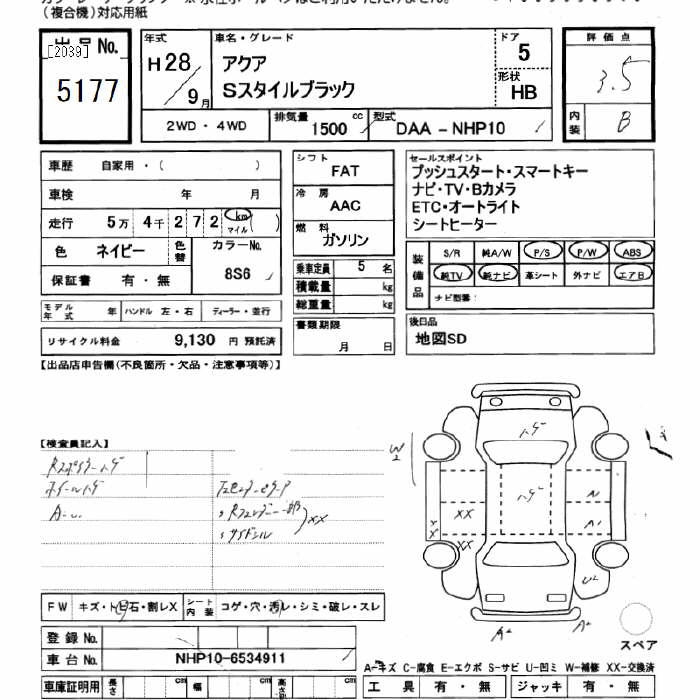 （複合機）対応用紙
出品No.
[2039]
5177
年式
H28／9月
車名・グレード
アクア
Sスタイルブラック
ドア
5
形状
HB
評価点
3.5
内装
B
2WD・4WD
排気量
1500 cc
型式
DAA-NHP10
車歴 自家用・（ ）
車検 年 月
走行 5万 4千 2 7 2 km マイル ( )
色 ネイビー 色替 カラーNo. 8S6
保証書 有・無
モデル年式 年 ハンドル 左・右 ディーラー・並行
リサイクル料金 9,130 円 預託済
シフト
FAT
冷房
AAC
燃料
ガソリン
乗車定員 5 名
積載量 kg
総重量 kg
書類期限
月 日
セールスポイント
プッシュスタート・スマートキー
ナビ・TV・Bカメラ
ETC・オートライト
シートヒーター
装備品
S/R 純A/W P/S P/W ABS
純TV 純ナビ 革シート 外ナビ エアB
ナビ型番：
後日品
地図SD
【出品店申告欄（不良箇所・欠品・注意事項等）】
【検査員記入】
ホイールトゲ
XX
トゲ
W2
トゲ
A1
A1
XX
XX
U2
A2
A2
スペア
FW キズ・トビ石・割レX シート内装 コゲ・穴・汚レ・シミ・破レ・スレ
登録No.
車台No. NHP10-6534911
車庫証明用 長さ cm 幅 cm 高さ cm
A-キズ C-腐食 E-エクボ S-サビ U-凹ミ W-補修 XX-交換済
工具 有・無 ジャッキ 有・無